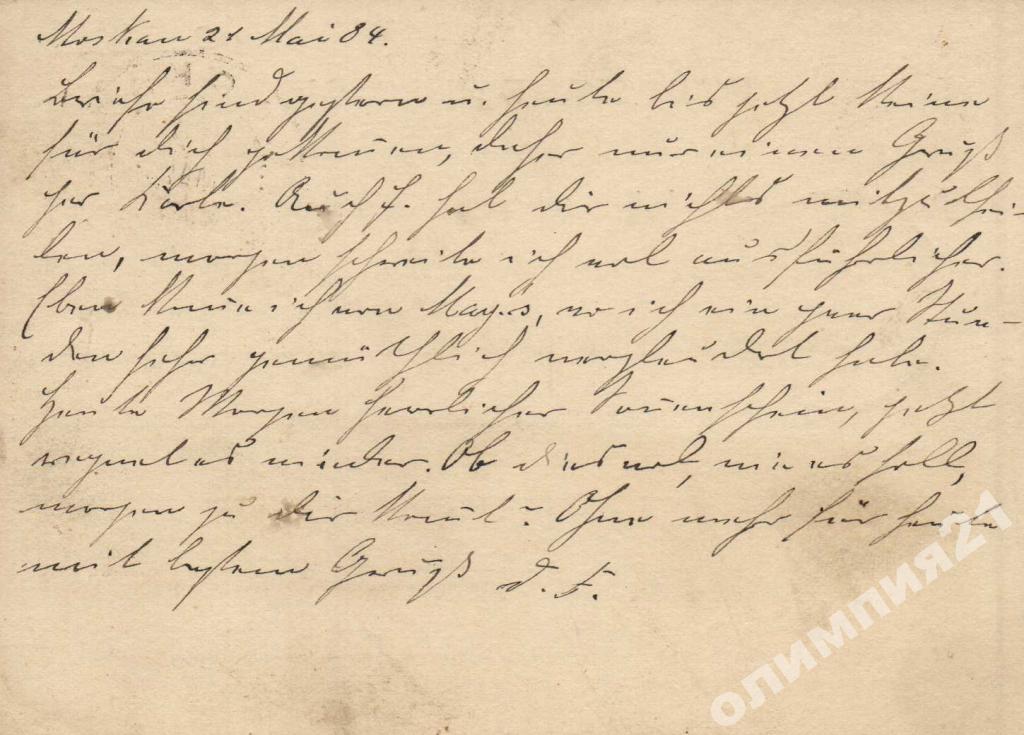 Moskau 21 Mai 84.
Briefe sind gestern u. heute bis jetzt keine
für dich gekommen, daher nur einen Gruß
per Karte. Auch J. hat dir nichts mitzuthei-
len, morgen schreibe ich ausführlicher.
Eben komme ich von May.s, wo ich ein paar Stun-
den sehr gemüthlich verplaudert habe.
Heute Morgen herrlicher Sonnenschein, jetzt
regnet es wieder. Ob dies wie es soll,
morgen zu dir kommt? Ohne mehr für heute
mit bestem Gruß d. F.
олимпия21